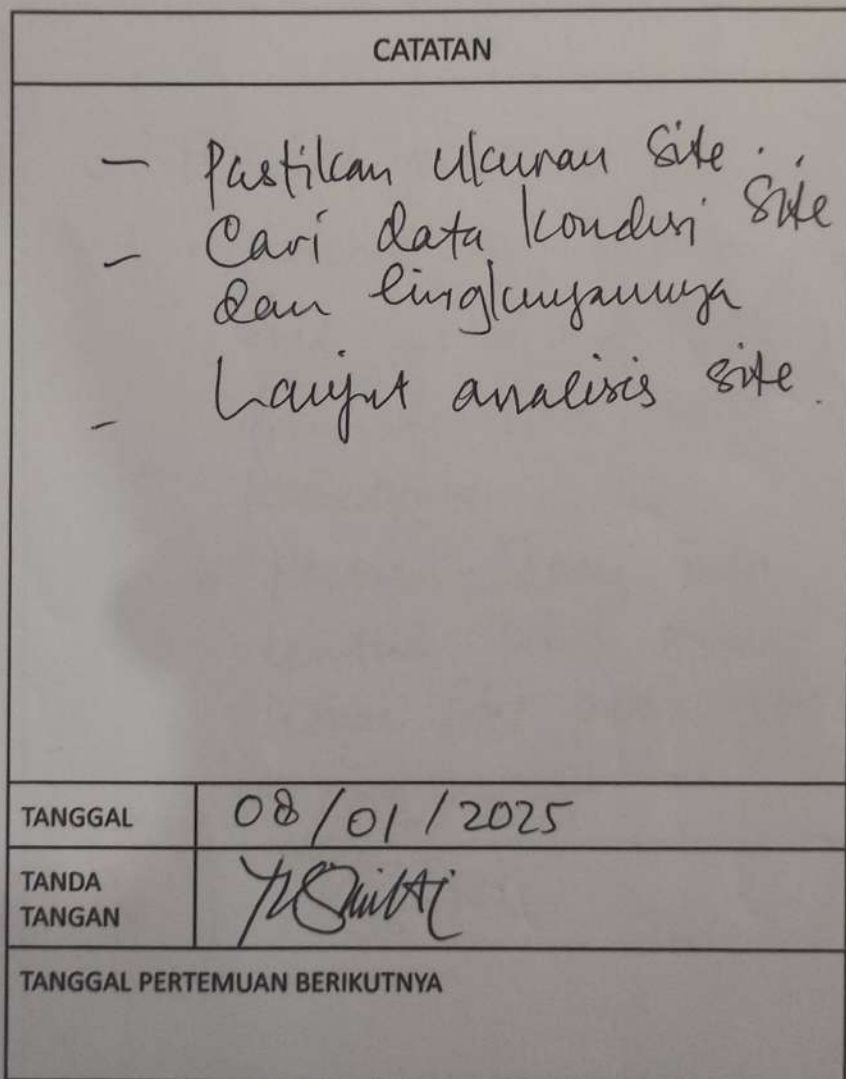 CATATAN
- Pastikan ukuran site.
- Cari data kondisi site
dan lingkungannya
- Lanjut analisis site.
TANGGAL 08/01/2025
TANDA
TANGAN
TANGGAL PERTEMUAN BERIKUTNYA